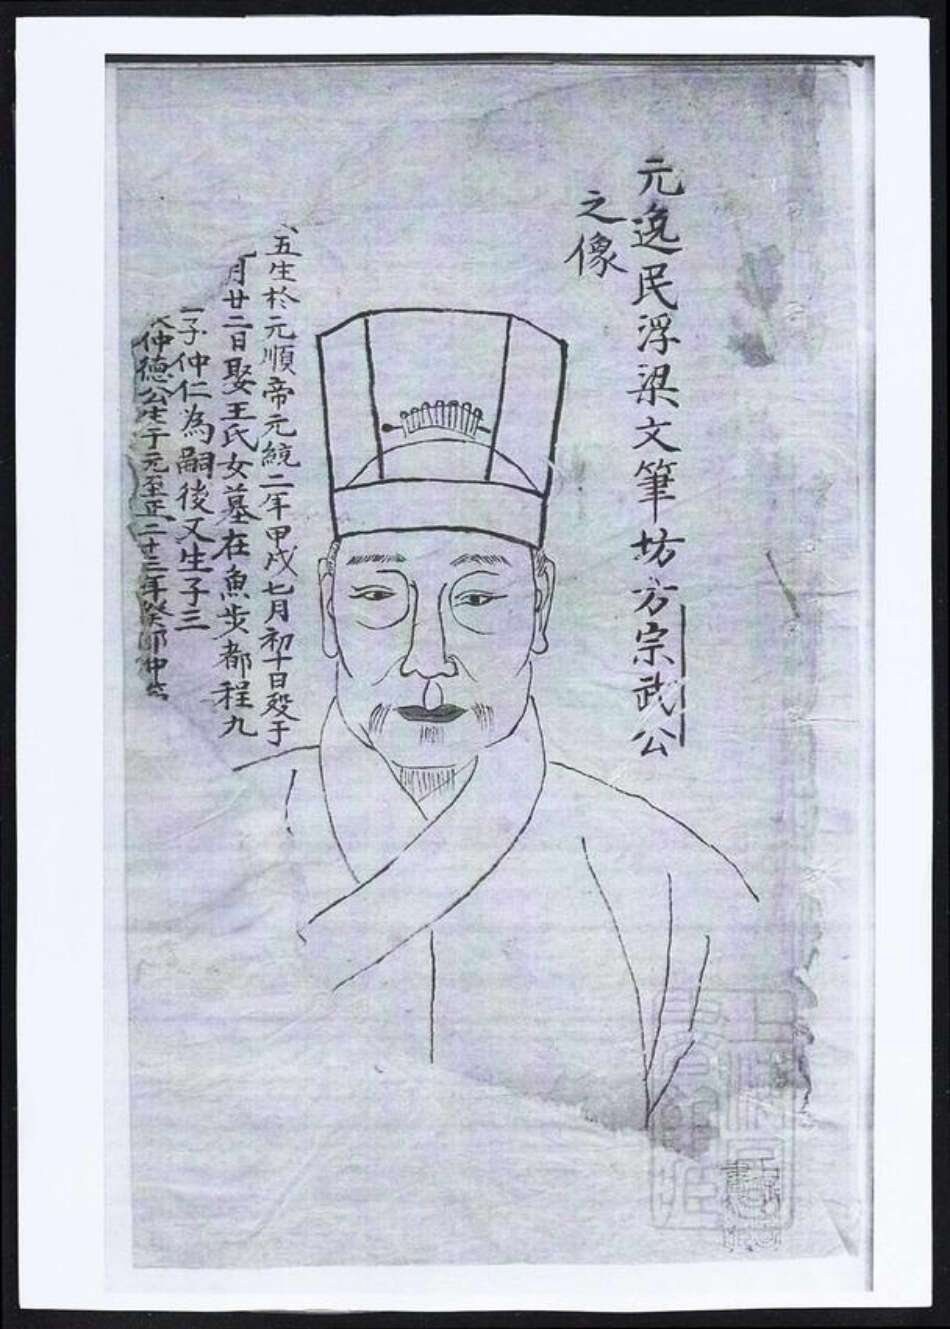 元逸民浮梁文筆坊方宗武公
之像
五生於元順帝元統二年甲戌七月初十日殁于
月廿二日娶王氏女墓在魚步都程九
子仲仁為嗣後又生子三
仲德公生于元至正二十三年癸卯仲